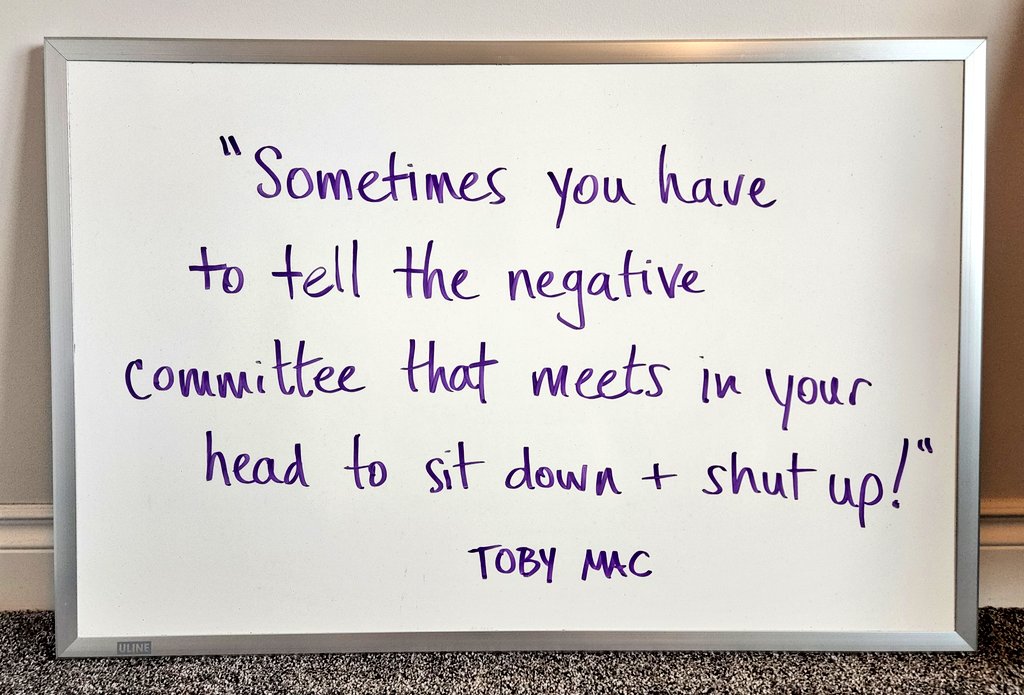 "Sometimes you have
to tell the negative
committee that meets in your
head to sit down + shut up!"
TOBY MAC
ULINE